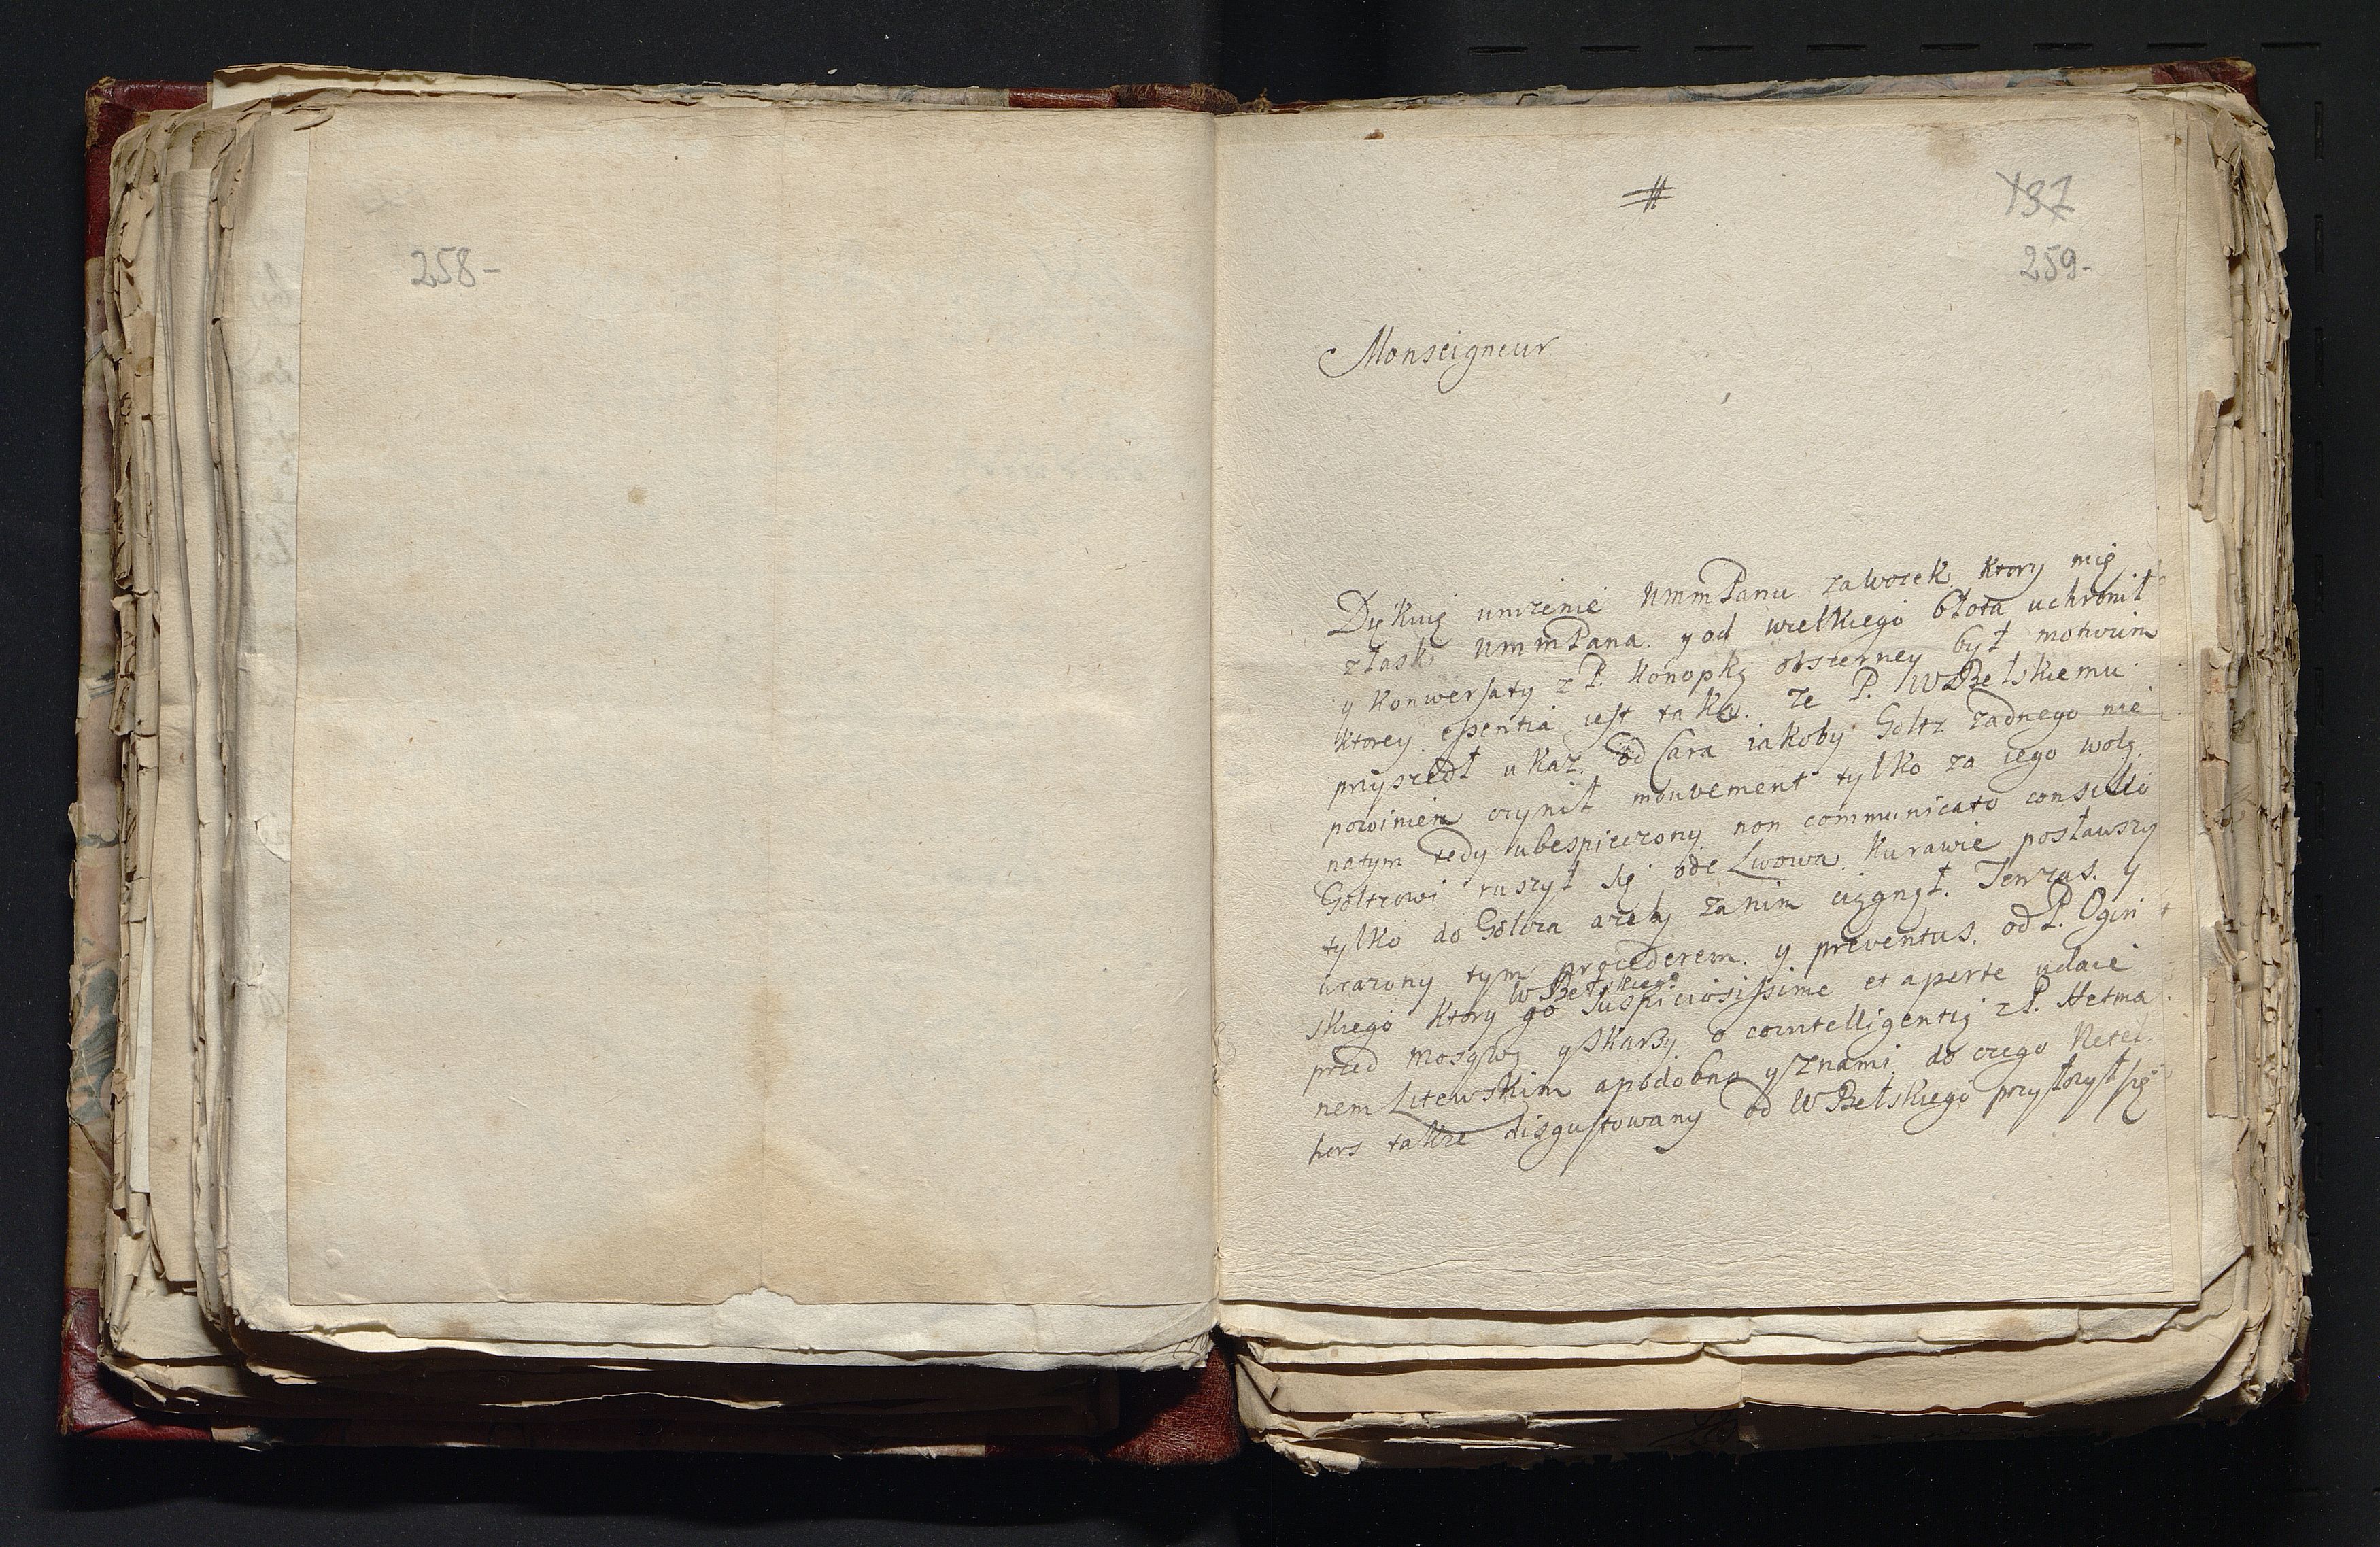 258-
#
137
259-
Monseigneur
Dziękuię unizenie WmmPanu za worek ktory mię
z łaski WmmPana y od wielkiego błota uchronił
y konwersaty z P. Konopką obszerney był motivum
ktorey essentia iest taka. ze P. WBełskiemu
przyszedł ukaz. od Cara iakoby Goltz zadnego nie
powinien czynić mouvement tylko za iego wolą.
natym tedy ubespieczony non communicato consilio
Goltzowi ruszył się ode Lwowa. Kurawie posławszy
tylko do Goltza azeby zanim ciągnął. Tenzas. y
urazony tym procederem. y preventus. od P. Ogin
skiego ktory go WBełskiego suspiciosissime et aperte udaie
przed Mosqwą y skarzy o cointelligentią z P. Hetma
nem Litewskim apodobno y znami. do czego Retel.
hors takze disgustowany od WBełskiego przyłozył się